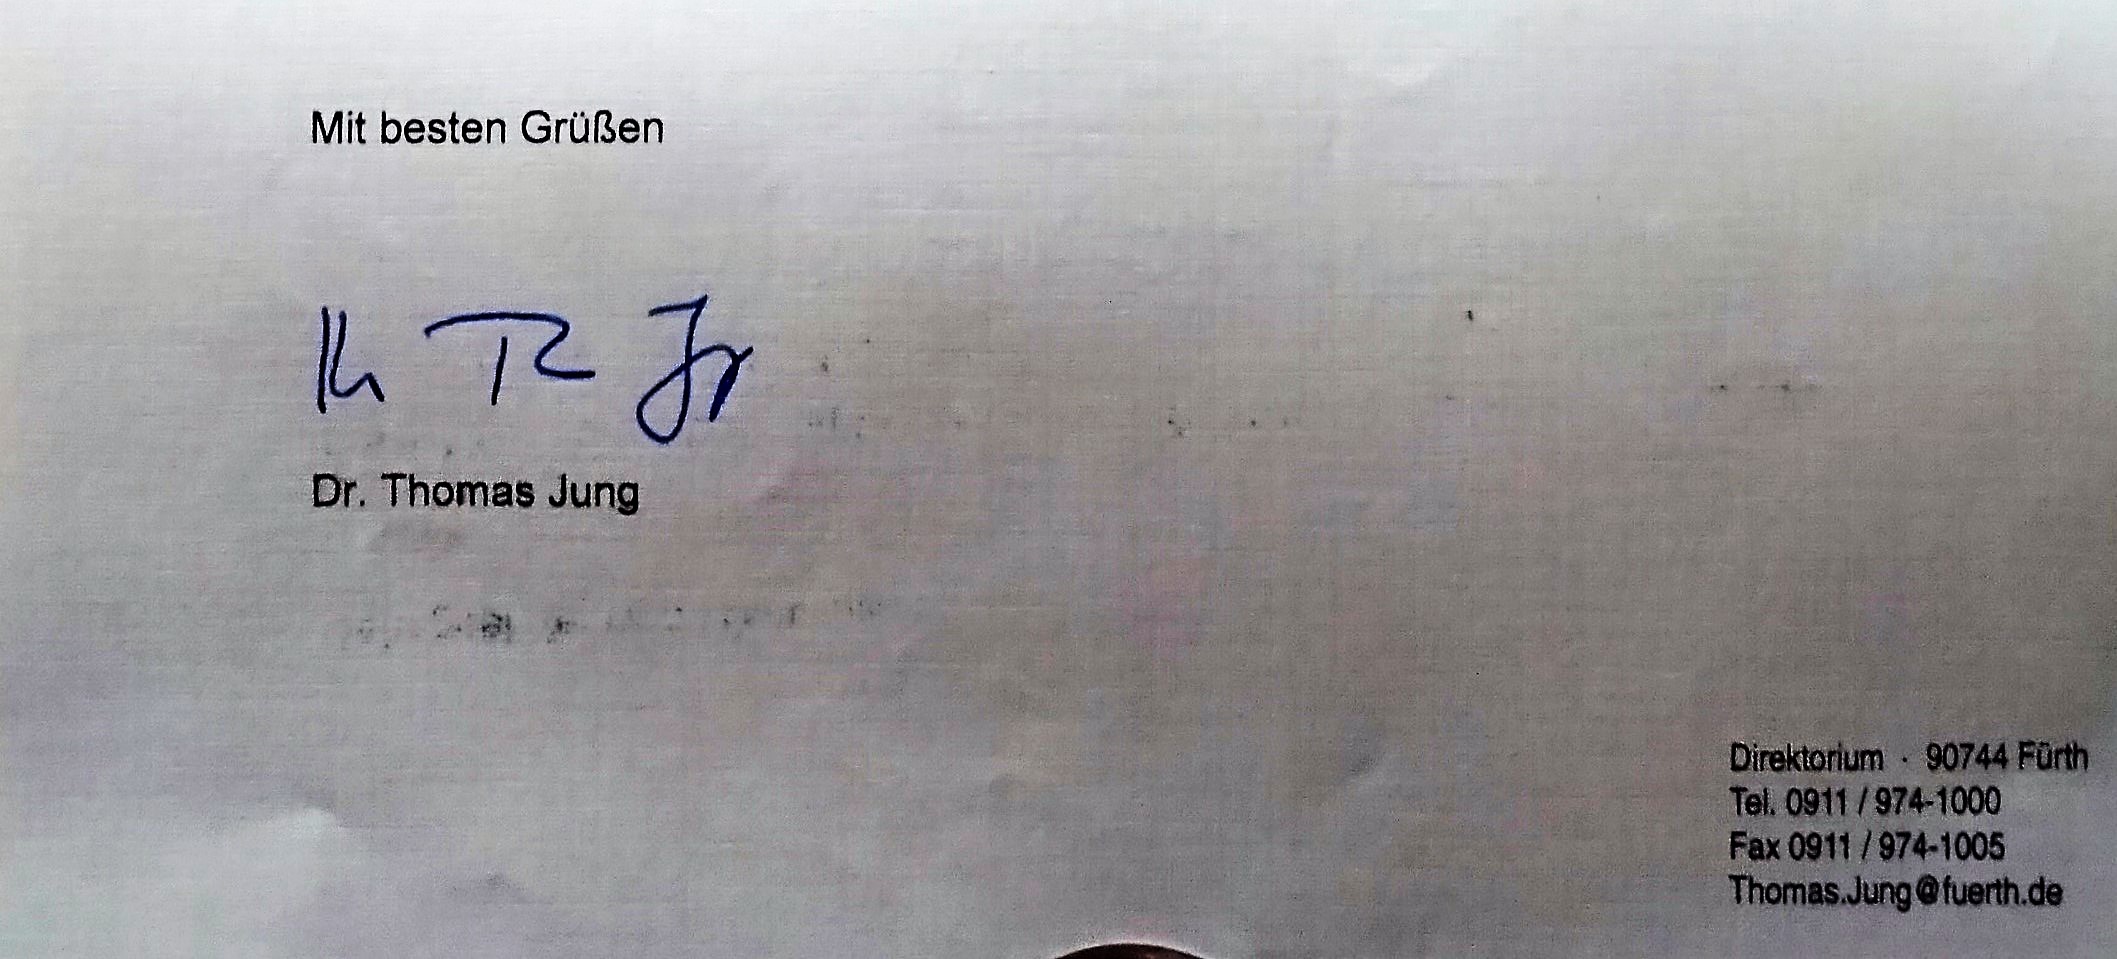 Mit besten Grüßen
Dr. Thomas Jung
Direktorium · 90744 Fürth
Tel. 0911 / 974-1000
Fax 0911 / 974-1005
Thomas.Jung@fuerth.de